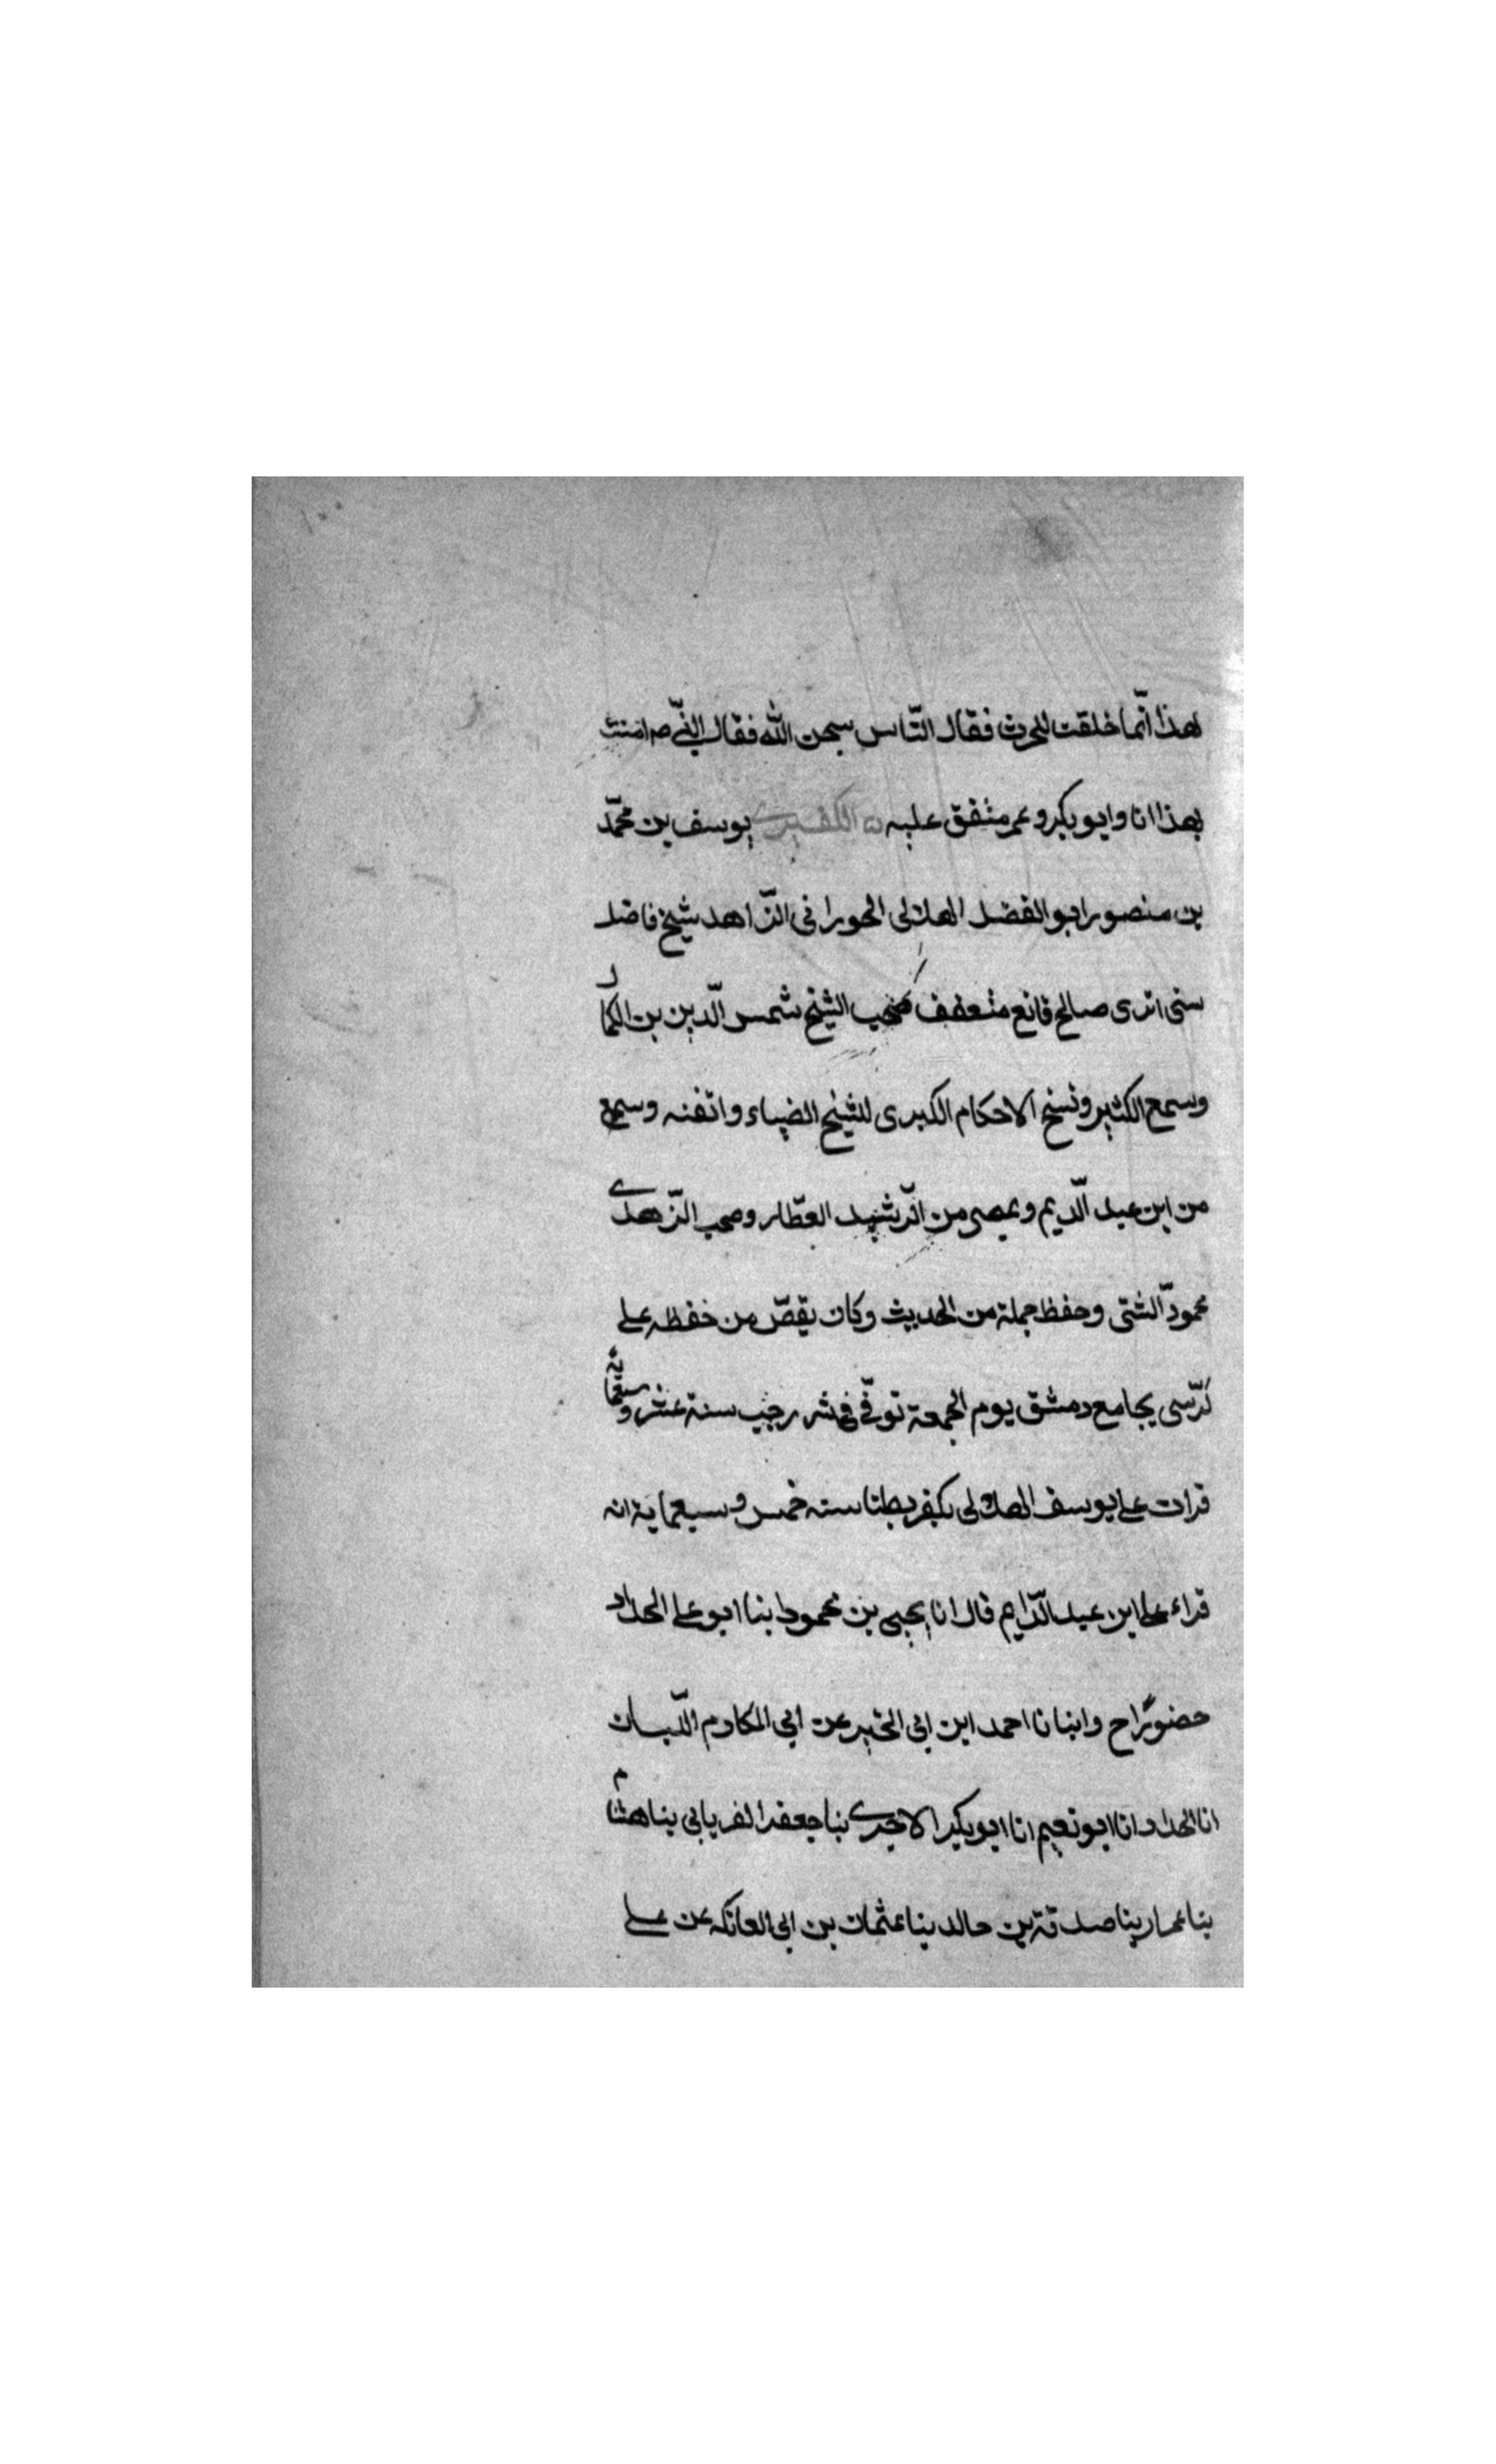 لهذا انّما خلقت للحرث فقال النّاس سبحن الله فقال النّبّي صم امنت
بهذا انا وابو بكر وعمر متفق عليه ن الكفيرى يوسف بن محمّد
بن منصور ابو الفضل الهلالى الحورانى الزّاهد شيخ فاضل
سنى اثرى صالح قانع متعفف صحب الشيخ شمس الّدين بن الكمال
وسمع الكثير ونسخ الاحكام الكبرى للشيخ الضياء واتقنه وسمع
من ابن عبد الّديم وبمصر من الرّشيد العطّار وصحب الزّهدى
محمود الّشتى وحفظ جملة من الحديث وكان يقصّ من حفظه على
كرسّى بجامع دمشق يوم الجمعة توفّى فى شر رجب سنة عشر وسبعمائة
قرات على يوسف الهلالى بكفر بطنا سنه خمس وسبعماية انه
قراء على ابن عبد الّدايم قال انا يحيى بن محمود ابنا ابو على الحداد
حضورًا ح وانبانا احمد ابن ابى الخير عن ابي المكارم اللّبان
انا الحداد انا ابو نعيم انا ابو بكر الاجرى بنا جعفر الفريابى بنا هشام
بنا عمار بنا صدقة بن خالد بنا عثمان بن ابى العاتكه عن على